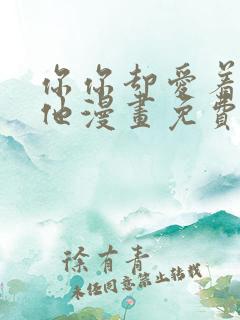 你你却爱着
他漫畫免費
徐有青
未经同意禁止转载